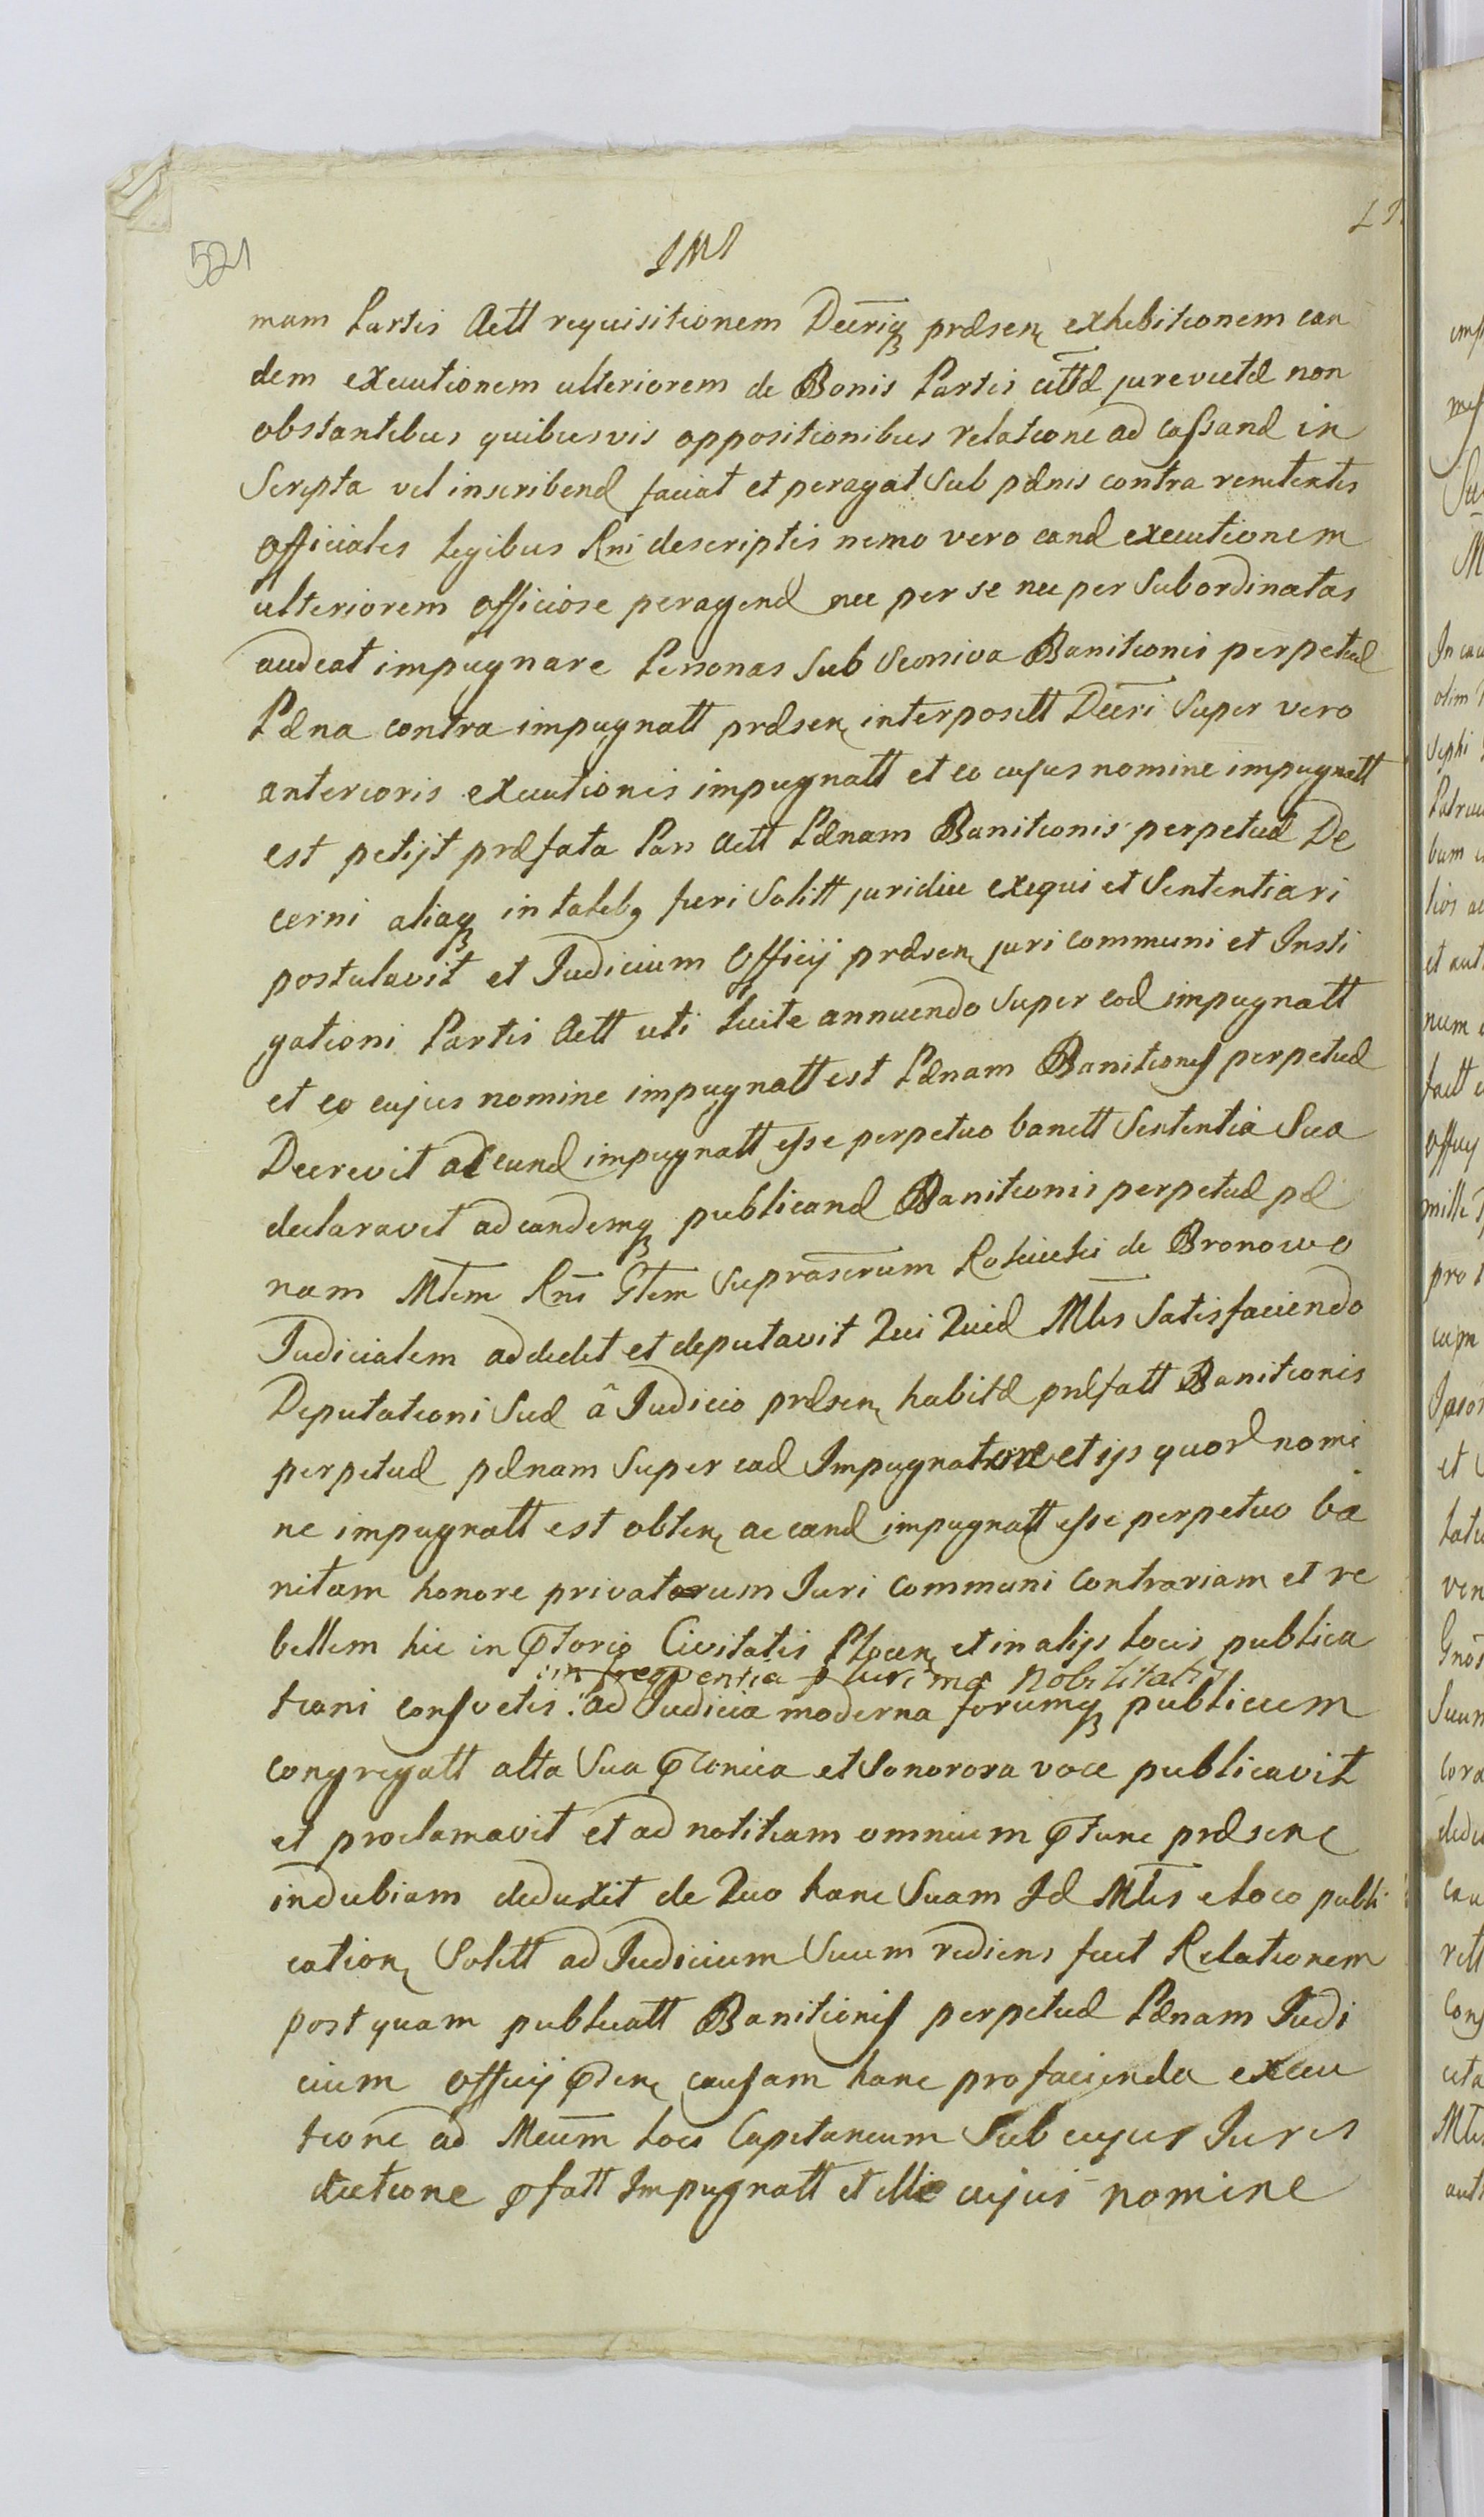 521
IMI
mam Partis Actt requisitionem Decriq₃ præsen exhibitionem ean
dem executionem ulteriorem de Bonis Partis cittæ jurevictæ non
obstantibus quibusvis oppositionibus relatione ad cassand in
Scripta vel inscribend faciat et peragat Sub pænis contra renitentes
Officiales Legibus Rni descriptis nemo vero eand executionem
ulteriorem officiose peragend nec per se nec per Subordinatas
audeat impugnare Personas Sub Banitionis perpetuæ
Pæna contra impugnatt præsen interposett Decri Super vero
anterioris executionis impugnatt et eo cujus nomine impugnatt
est petijt præfata Pars Actt Pænam Banitionis perpetuæ De
cerni aliaq₃ in talib₉ fieri Solitt juridice exequi et Sententiari
postulavit et Judicium Officij præsen juri communi et Insti
gationi Partis Actt uti licite annuendo Super eod impugnatt
et eo cujus nomine impugnatt est Pænam Banitionis perpetuæ
Decrevit ac eund impugnatt esse perpetuo banitt Sententia Sua
declaravit ad eandemq₃ publicand Banitionis perpetuæ pæ
nam Mtem Rni Gtem Suprascrum de Bronowo
Judicialem addidit et deputavit Qui Quid Mtris Satisfaciendo
Deputationi Suæ â Judicio præsen habitæ præfatt Banitionis
perpetuæ pænam Super ead Impugnatore et ijs quord nomi
ne impugnatt est obten ac eand impugnatt esse perpetuo ba
nitam honore privatorum Juri Communi Contrariam et re
bellem hic in Ptorio Civitatis Plocen et in alijs Locis publica
in frequentia plurima Nobilitatis
tioni consvetis ad Judicia moderna forumq₃ publicum
congregatt alta Sua et Sonorora voce publicavit
et proclamavit et ad notitiam omnium ptunc præsene
indubiam deduxit de Quo hanc Suam Id Mtris e Loco publi
cation Solitt ad Judicium Suum rediens fecit Relationem
post quam publicatt Banitionis perpetuæ Pænam Judi
cium Officij pden causam hanc pro facienda execu
tione ad Mcum Loci Capitaneum Sub cujus Juris
dictione pfatt Impugnatt et ille cujus nomine